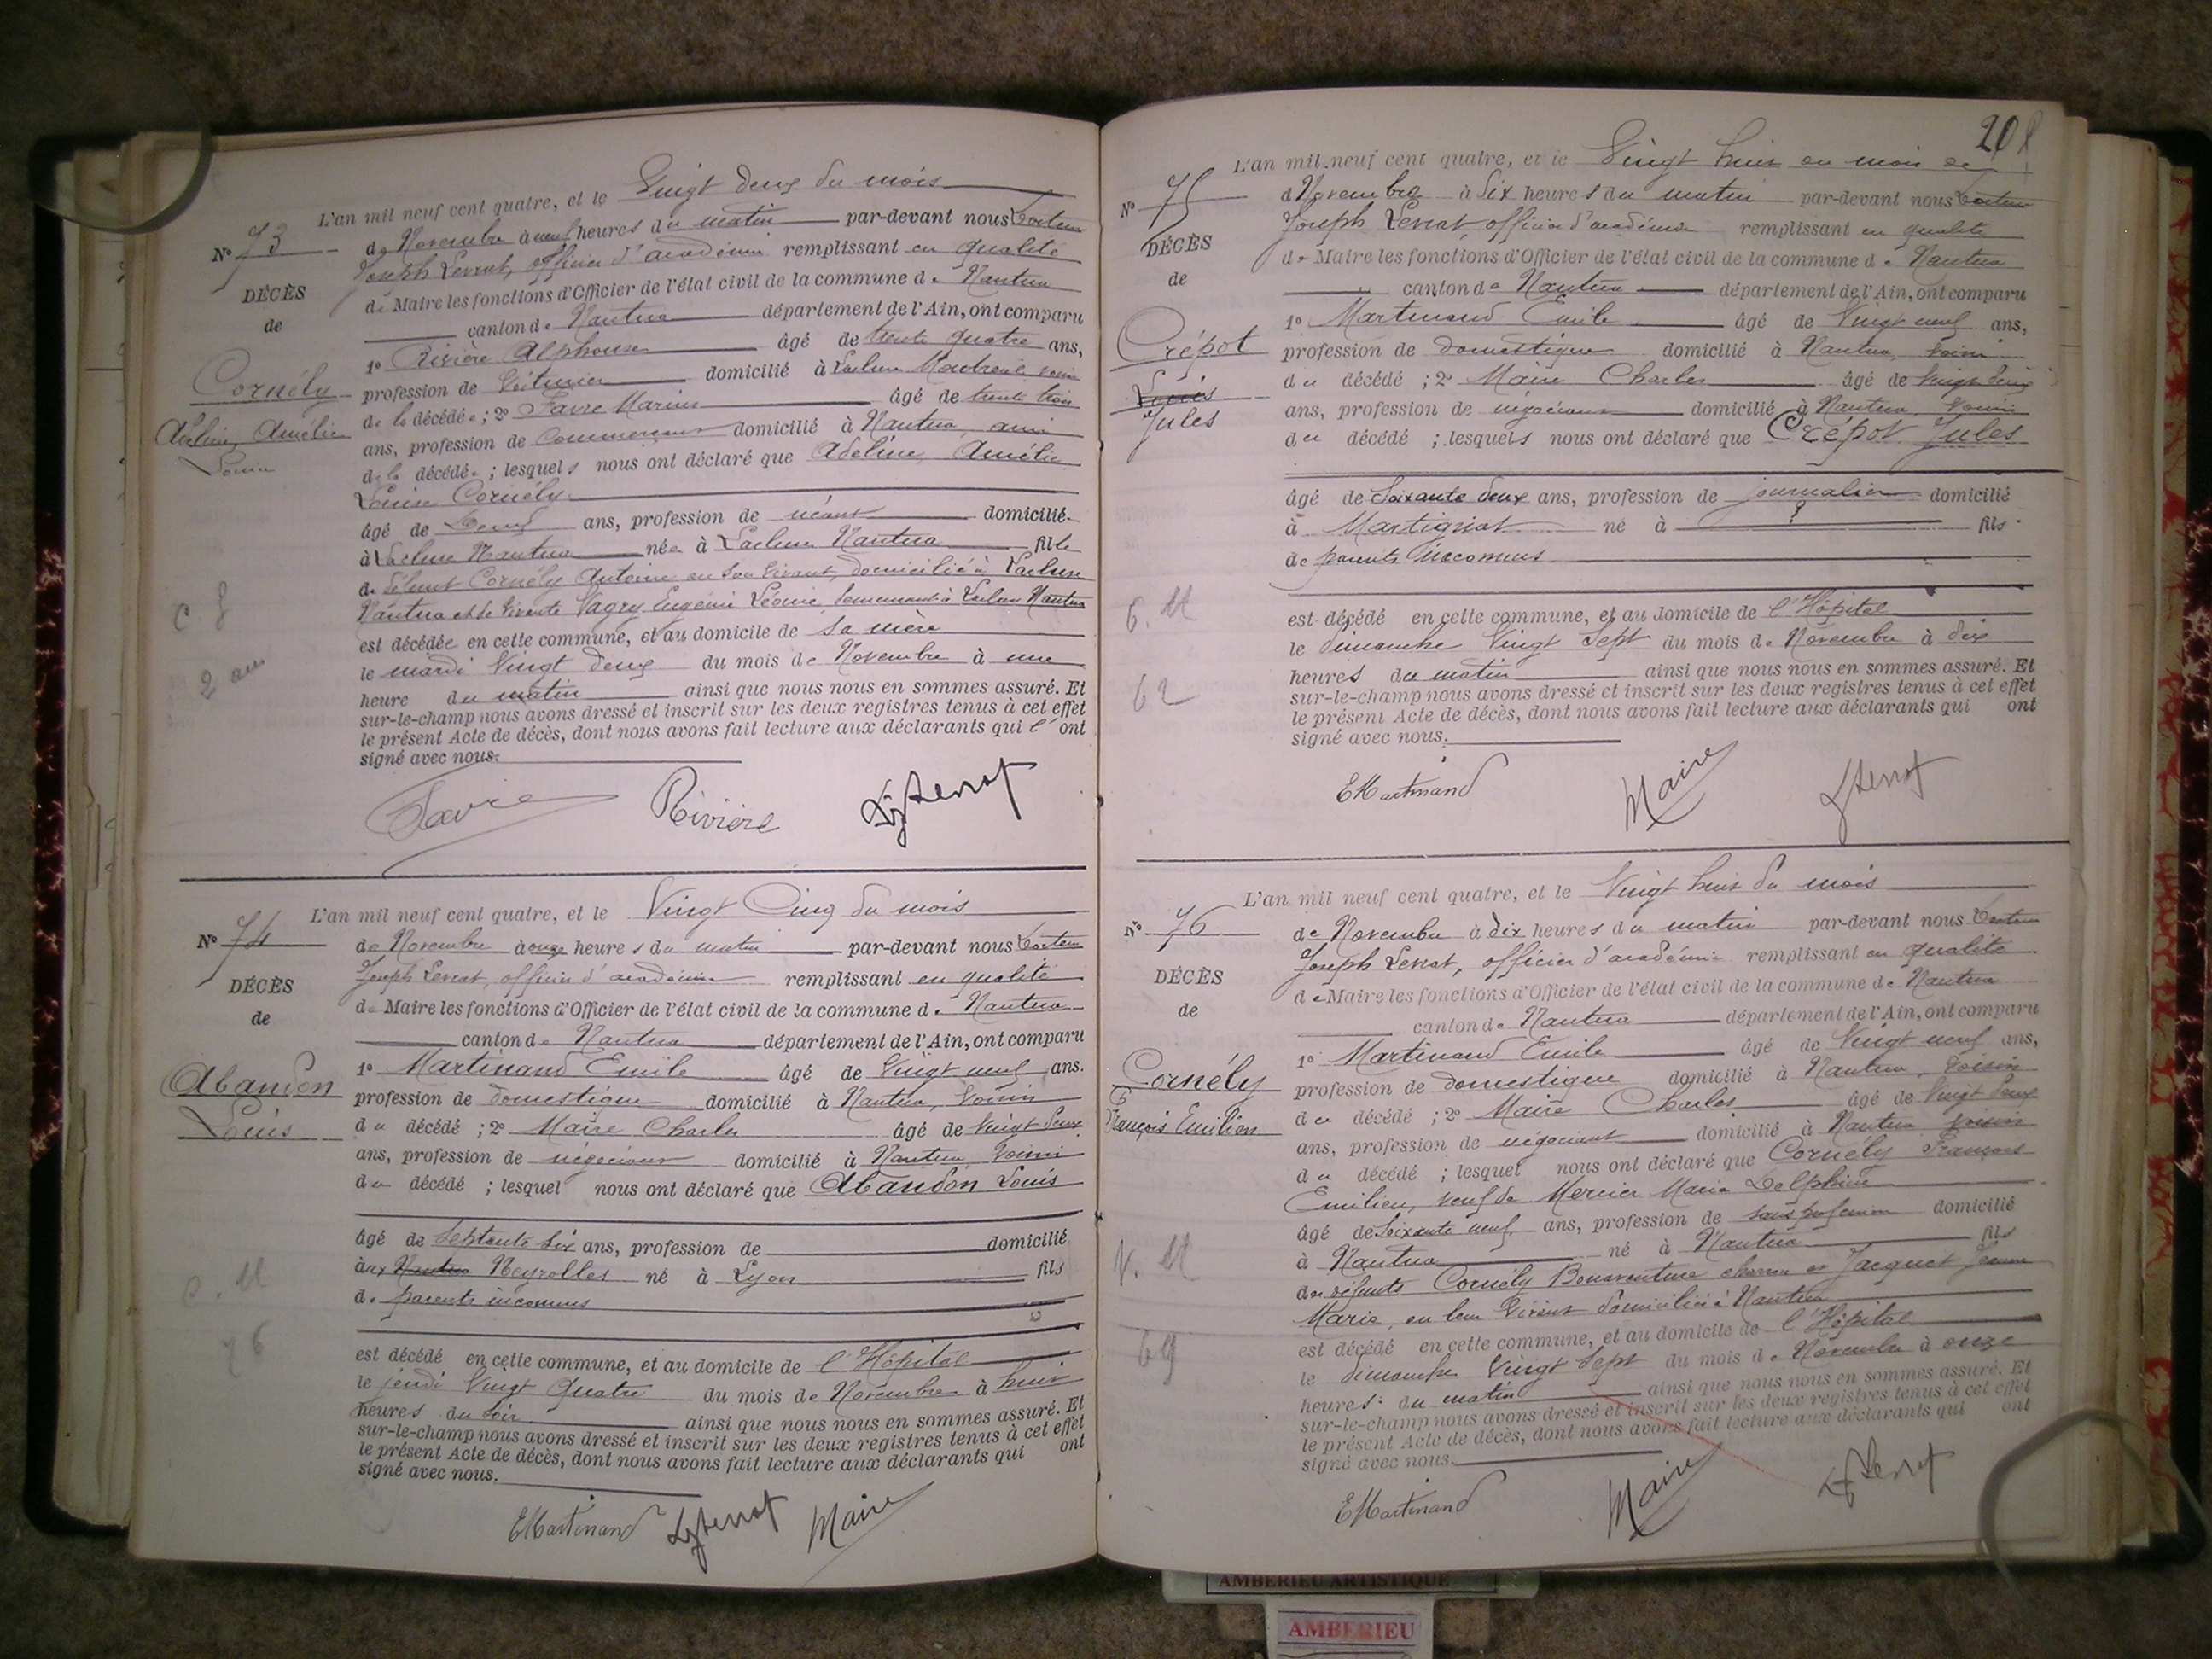 L'an mil neuf cent quatre, et le Vingt deux du mois
Nº 73
de Novembre à neuf heures du matin par-devant nous
Joseph Levrat, officier d'académie remplissant en qualité
DÉCÈS
de Maire les fonctions d'Officier de l'état civil de la commune de Nantua
de
canton de Nantua département de l'Ain, ont comparu
1º Rivière Alphonse âgé de trente quatre ans,
Cornély
profession de domicilié à
Adeline Amélie
de la décédée ; 2º Favre Marius âgé de trente trois
Louise
ans, profession de Commerçant domicilié à Nantua, ami
de la décédée ; lesquels nous ont déclaré que Adeline Amélie
Louise Cornély
âgé de Deux ans, profession de néant domicilié
à Lacluse Nantua née à Lacluse Nantua fille
de défunt Cornély Antoine en son vivant, domicilié à Lacluse
Nantua et de vivante Vagry Eugénie Léonie, demeurant à Lacluse Nantua
C. f
est décédée en cette commune, et au domicile de sa mère
2 ans
le mardi Vingt deux du mois de Novembre à une
heure du matin ainsi que nous nous en sommes assuré. Et
sur-le-champ nous avons dressé et inscrit sur les deux registres tenus à cet effet
le présent Acte de décès, dont nous avons fait lecture aux déclarants qui l'ont
signé avec nous.
Favre Rivière Levrat
L'an mil neuf cent quatre, et le Vingt Cinq du mois
Nº 74
de Novembre à onze heures du matin par-devant nous
Joseph Levrat, officier d'académie remplissant en qualité
DÉCÈS
de Maire les fonctions d'Officier de l'état civil de la commune de Nantua
de
canton de Nantua département de l'Ain, ont comparu
1º Martinand Emile âgé de Vingt neuf ans.
Abandon
profession de domestique domicilié à Nantua, voisin
Louis
du décédé ; 2º Maire Charles âgé de Vingt Deux
ans, profession de négociant domicilié à Nantua, voisin
du décédé ; lesquel nous ont déclaré que Abandon Louis
âgé de Septante Six ans, profession de domicilié
aux Nantua Neyrolles né à Lyon fils
C. M
de parents inconnus
76
est décédé en cette commune, et au domicile de l'Hôpital
le jeudi Vingt Quatre du mois de Novembre à huit
heures du soir ainsi que nous nous en sommes assuré. Et
sur-le-champ nous avons dressé et inscrit sur les deux registres tenus à cet effet
le présent Acte de décès, dont nous avons fait lecture aux déclarants qui ont
signé avec nous.
EMartinand Levrat Maire
208
L'an mil neuf cent quatre, et le Vingt huit du mois de
Nº 75
d Novembre à dix heures du matin par-devant nous
Joseph Levrat, officier d'académie remplissant en qualité
DÉCÈS
de Maire les fonctions d'Officier de l'état civil de la commune de Nantua
de
canton de Nantua département de l'Ain, ont comparu
1º Martinand Emile âgé de Vingt neuf ans,
Crépot
profession de domestique domicilié à Nantua, voisin
Louis
du décédé ; 2º Maire Charles âgé de Vingt Deux
Jules
ans, profession de négociant domicilié à Nantua, voisin
du décédé ; lesquels nous ont déclaré que Crépot Jules
âgé de Soixante deux ans, profession de journalier domicilié
à Martignat né à ? fils
de parents Inconnus
C. M
est décédé en cette commune, et au domicile de l'Hôpital
le dimanche Vingt Sept du mois de Novembre à dix
62
heures du matin ainsi que nous nous en sommes assuré. Et
sur-le-champ nous avons dressé et inscrit sur les deux registres tenus à cet effet
le présent Acte de décès, dont nous avons fait lecture aux déclarants qui ont
signé avec nous.
EMartinand Maire Levrat
L'an mil neuf cent quatre, et le Vingt huit du mois
Nº 76
de Novembre à dix heures du matin par-devant nous
Joseph Levrat, officier d'académie remplissant en qualité
DÉCÈS
de Maire les fonctions d'Officier de l'état civil de la commune de Nantua
de
canton de Nantua département de l'Ain, ont comparu
1º Martinand Emile âgé de Vingt neuf ans,
Cornély
profession de domestique domicilié à Nantua, voisin
François Emilien
du décédé ; 2º Maire Charles âgé de Vingt Deux
ans, profession de négociant domicilié à Nantua voisin
du décédé ; lesquel nous ont déclaré que Cornély François
Emilien, veuf de Mercier Marie Delphine
âgé de Soixante neuf ans, profession de sans profession domicilié
à Nantua né à Nantua fils
V. M
de défunts Cornély Bonaventure charron et Jacquet Jeanne
Marie, en leur vivant domiciliés à Nantua
69
est décédé en cette commune, et au domicile de l'Hôpital
le dimanche Vingt Sept du mois de Novembre à onze
heures du matin ainsi que nous nous en sommes assuré. Et
sur-le-champ nous avons dressé et inscrit sur les deux registres tenus à cet effet
le présent Acte de décès, dont nous avons fait lecture aux déclarants qui ont
signé avec nous.
EMartinand Maire Levrat
AMBERIEU ARTISTIQUE
AMBERIEU